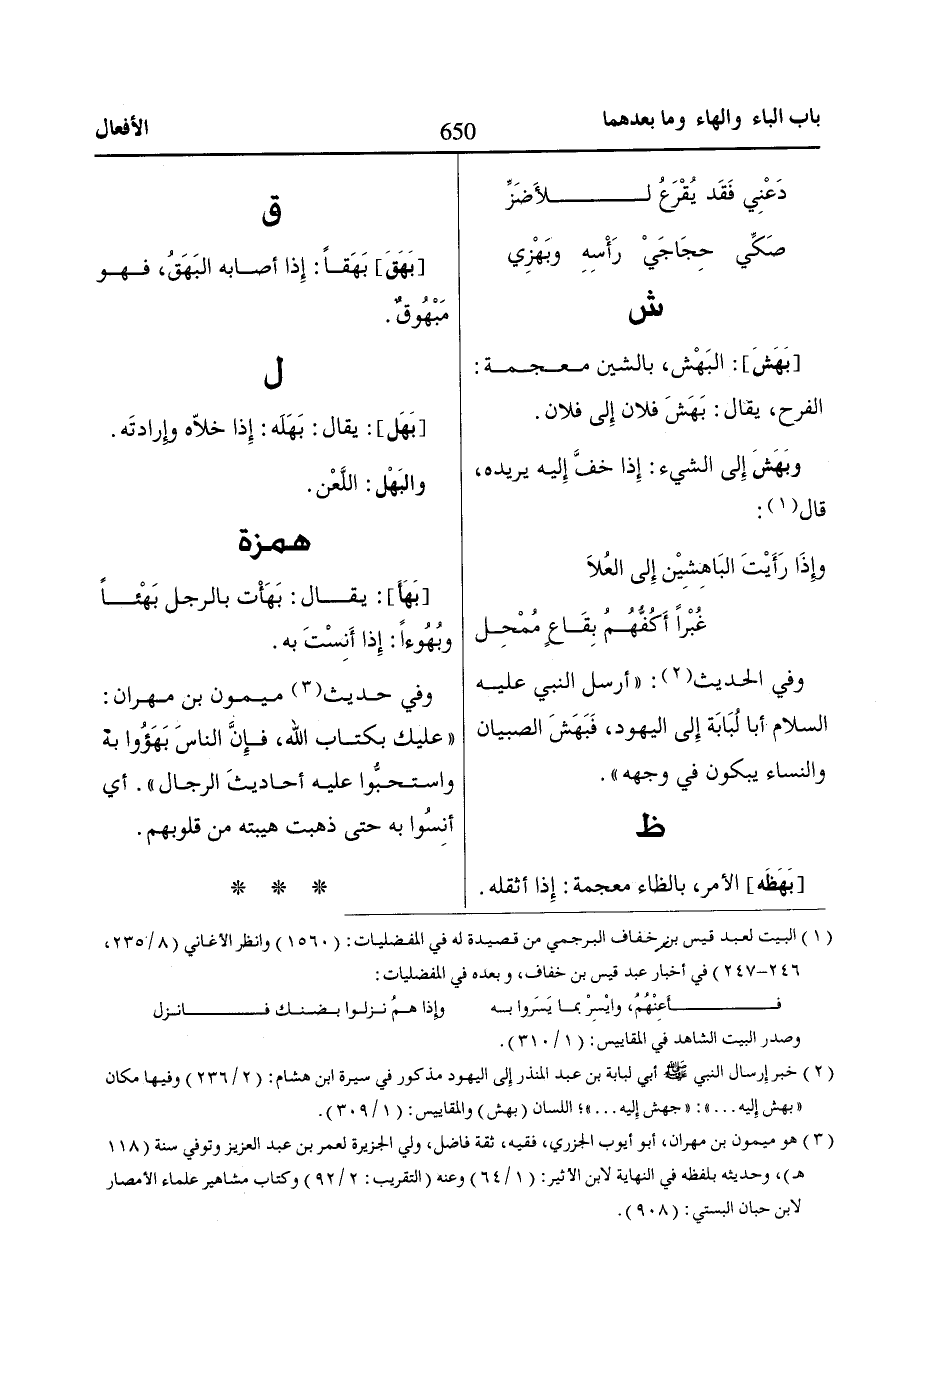 باب الباء والهاء وما بعدهما
650
الأفعال
دَعْنِي فَقَد يُقْرَعُ لـــــــلأَضَزِّ
صَكِّي حِجَاجَيْ رَأْسِهِ وبَهْزِي
ش
[بَهَشَ]: البَهْش، بالشين معجمة:
الفرح، يقال: بَهَشَ فلان إلى فلان.
وبَهَشَ إلى الشيء: إذا خفَّ إليه يريده،
قال(١):
وإِذَا رَأَيْتَ البَاهِشِيْن إلى العُلاَ
غُبْراً أَكُفُّهُم بِقَاعٍ مُمْحِل
وفي الحديث(٢): «أرسل النبي عليه
السلام أبا لُبَابَة إلى اليهود، فَبَهَشَ الصبيان
والنساء يبكون في وجهه».
ظ
[بَهَظَه] الأمر، بالظاء معجمة: إذا أثقله.
ق
[بَهَقَ] بَهَقاً: إذا أصابه البَهَقُ، فهو
مَبْهُوقٌ.
ل
[بَهَل]: يقال: بَهَلَه: إذا خلاّه وإرادتَه.
والبَهْل: اللَّعْن.
همزة
[بَهَأَ]: يقال: بَهَأْت بالرجل بَهْئاً
وبُهُوءاً: إذا أَنِسْتَ به.
وفي حديث(٣) ميمون بن مهران:
«عليك بكتاب الله، فإنَّ الناسَ بَهَؤُوا به
واستحبُّوا عليه أحاديثَ الرجال». أي
أنِسُوا به حتى ذهبت هيبته من قلوبهم.
* * *
(١) البيت لعبد قيس بن خفاف البرجمي من قصيدة له في المفضليات: (١٥٦٠) وانظر الأغاني (٨/ ٢٣٥،
٢٤٦-٢٤٧) في أخبار عبد قيس بن خفاف، وبعده في المفضليات:
فـــــأعِنْهُمُ، وايْسِرْ بما يَسَروا به وإذا همُ نزلوا بضنك فـــانزل
وصدر البيت الشاهد في المقاييس: (١/ ٣١٠).
(٢) خبر إرسال النبي ﷺ أبي لبابة بن عبد المنذر إلى اليهود مذكور في سيرة ابن هشام: (٢/ ٢٣٦) وفيها مكان
«بهش إليه...»: «جهش إليه...»؛ اللسان (بهش) والمقاييس: (١/ ٣٠٩).
(٣) هو ميمون بن مهران، أبو أيوب الجزري، فقيه، ثقة فاضل، ولي الجزيرة لعمر بن عبد العزيز وتوفي سنة (١١٨
هـ)، وحديثه بلفظه في النهاية لابن الأثير: (١/ ٦٤) وعنه (التقريب: ٢/ ٩٢) وكتاب مشاهير علماء الأمصار
لابن حبان البستي: (٩٠٨).